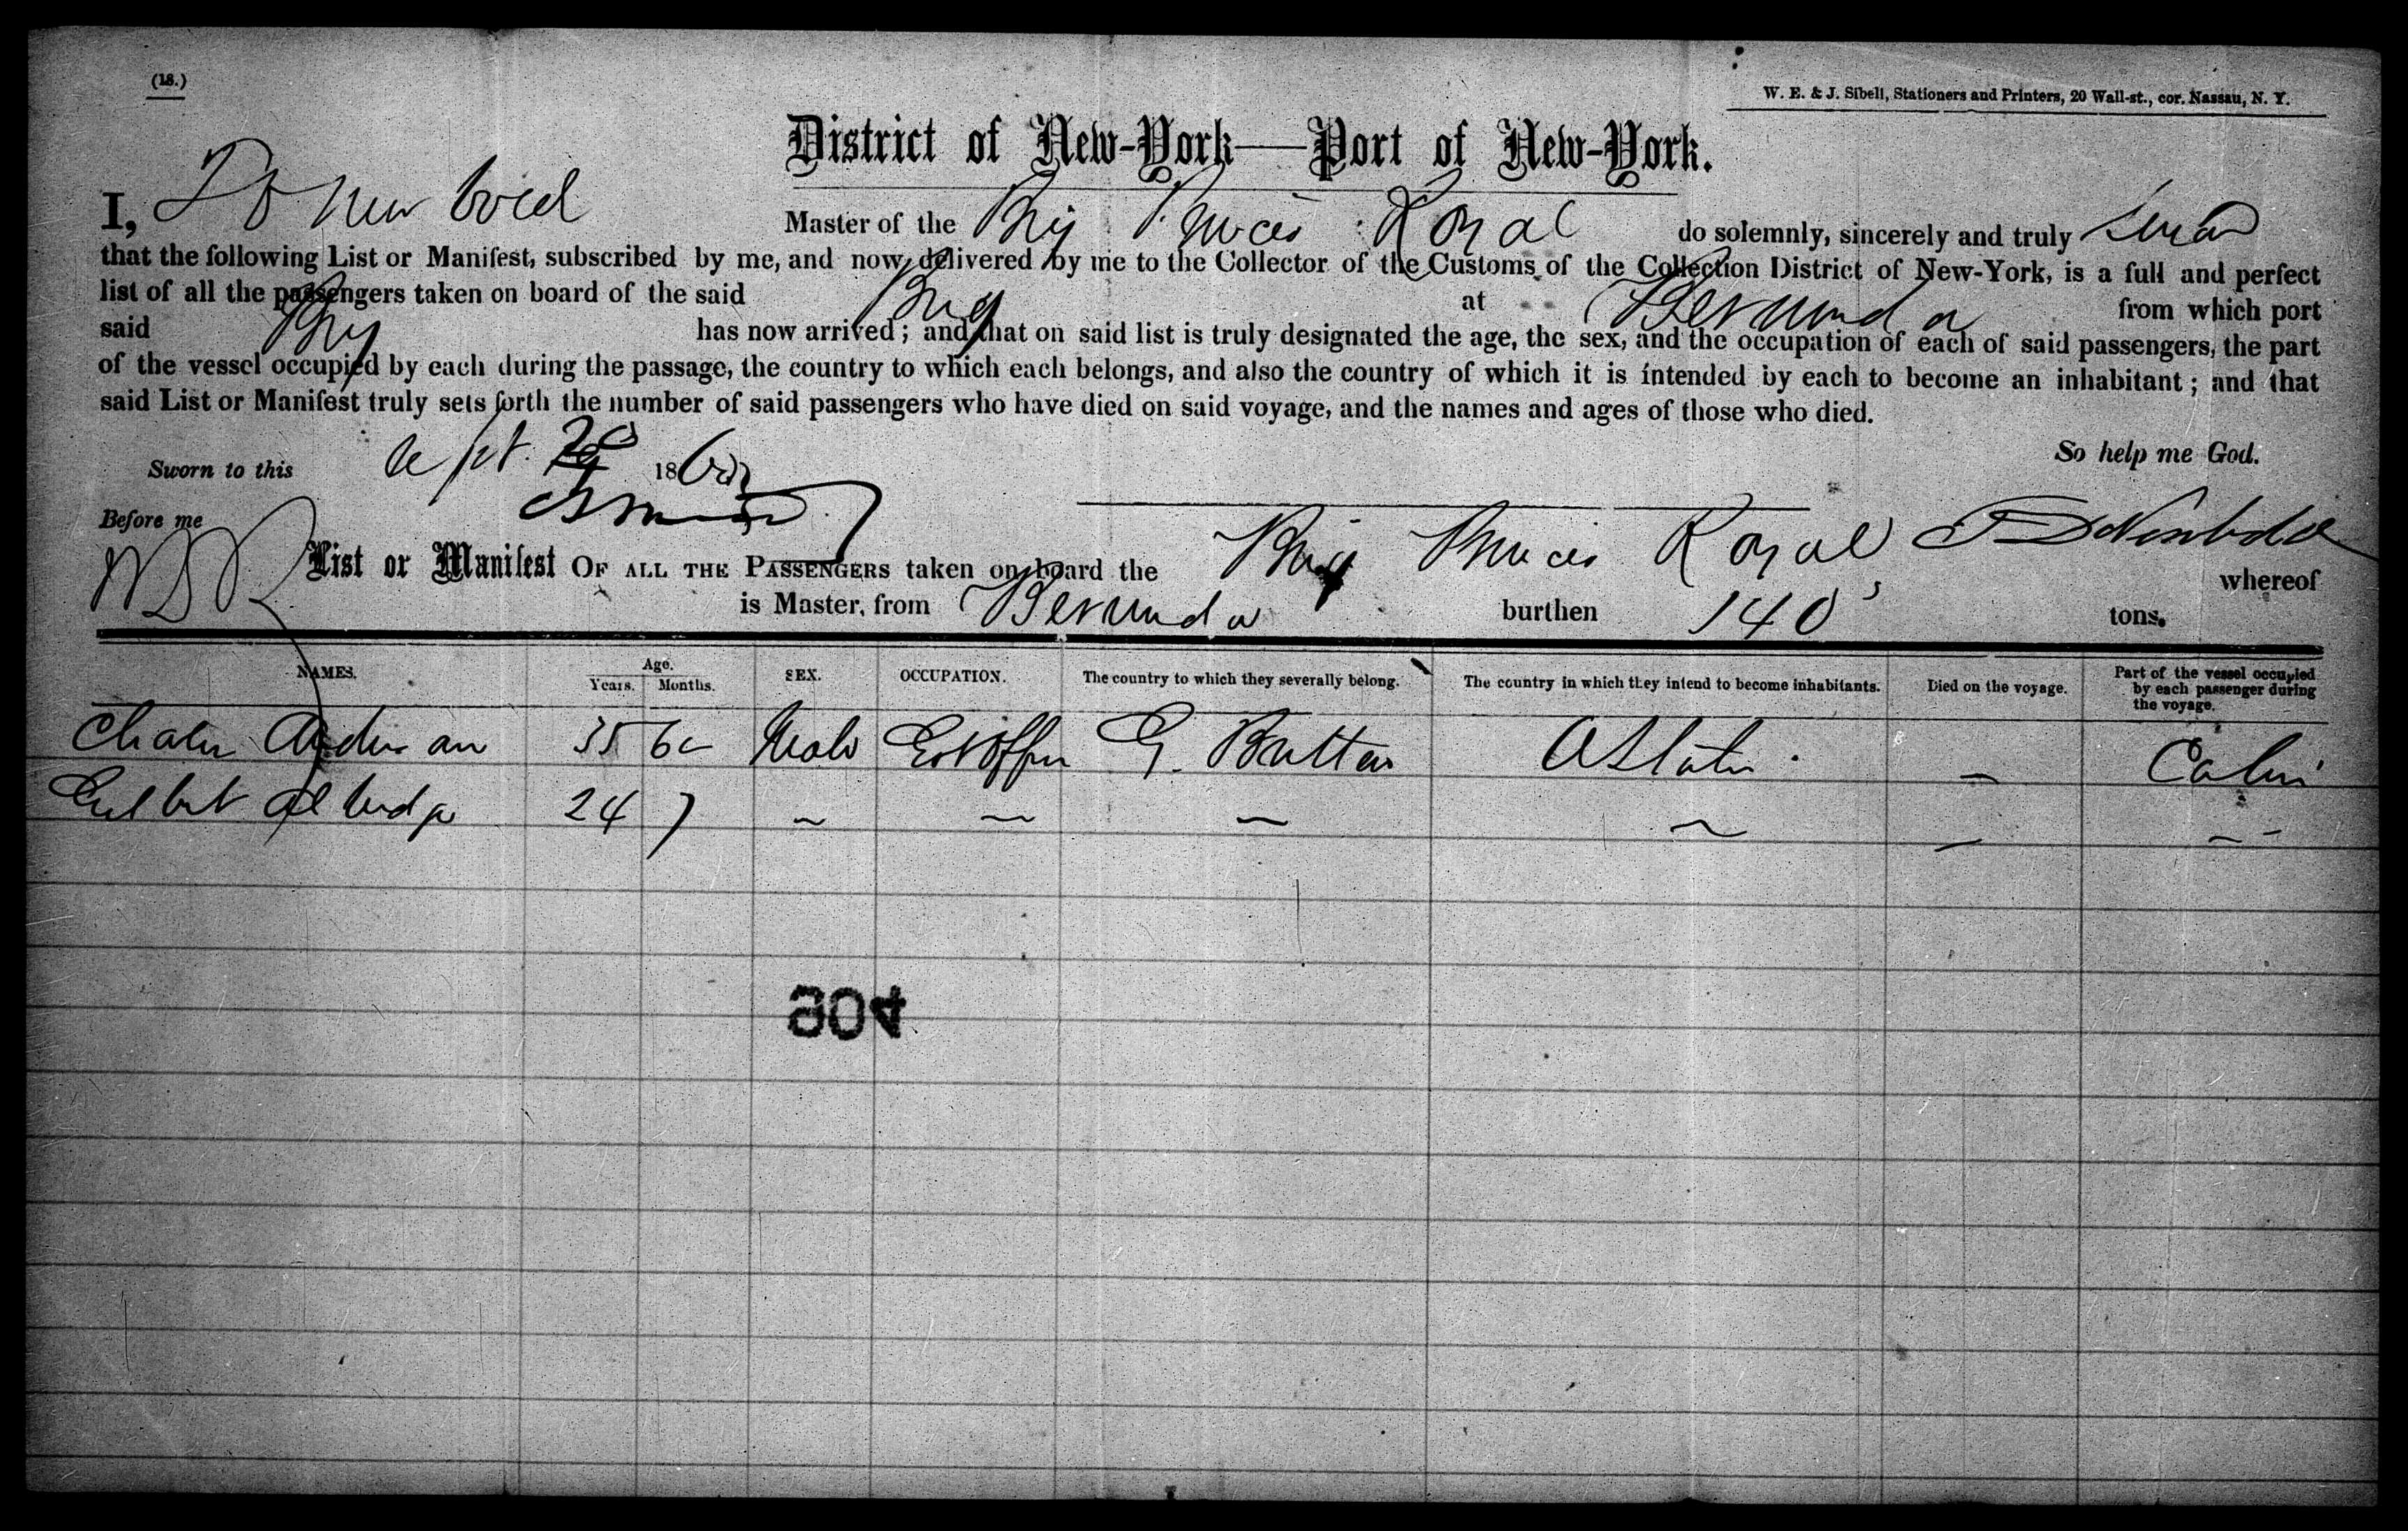 (18.)
W. E. & J. Sibell, Stationers and Printers, 20 Wall-st., cor. Nassau, N. Y.
District of New-York—Port of New-York.
I, Master of the Brig Princes Royal do solemnly, sincerely and truly swear
that the following List or Manifest, subscribed by me, and now delivered by me to the Collector of the Customs of the Collection District of New-York, is a full and perfect
list of all the passengers taken on board of the said Brig at Bermuda from which port
said Brig has now arrived; and that on said list is truly designated the age, the sex, and the occupation of each of said passengers, the part
of the vessel occupied by each during the passage, the country to which each belongs, and also the country of which it is intended by each to become an inhabitant; and that
said List or Manifest truly sets forth the number of said passengers who have died on said voyage, and the names and ages of those who died.
So help me God.
Sworn to this Sept. 186
Before me
List or Manifest OF ALL THE PASSENGERS taken on board the Brig Princes Royal whereof
is Master, from Bermuda burthen 140 tons.
NAMES. Age. Years. Months. SEX. OCCUPATION. The country to which they severally belong. The country in which they intend to become inhabitants. Died on the voyage. Part of the vessel occupied by each passenger during the voyage.
Anderson 35 6 Male G. Britten Cabin
24 7 — — — — — —